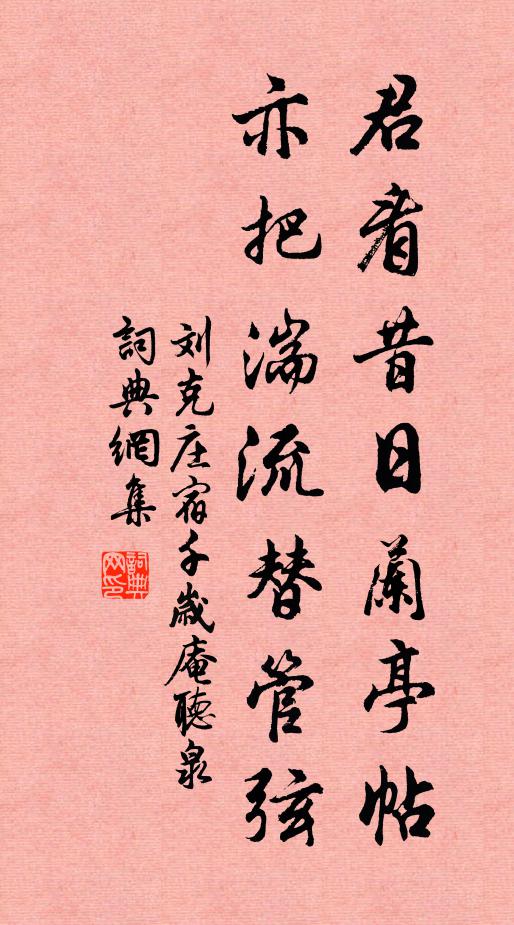 君看昔日蘭亭帖
亦把湍流替管弦
刘克庄宿千歲庵聽泉
詞典網集
詞典
网印